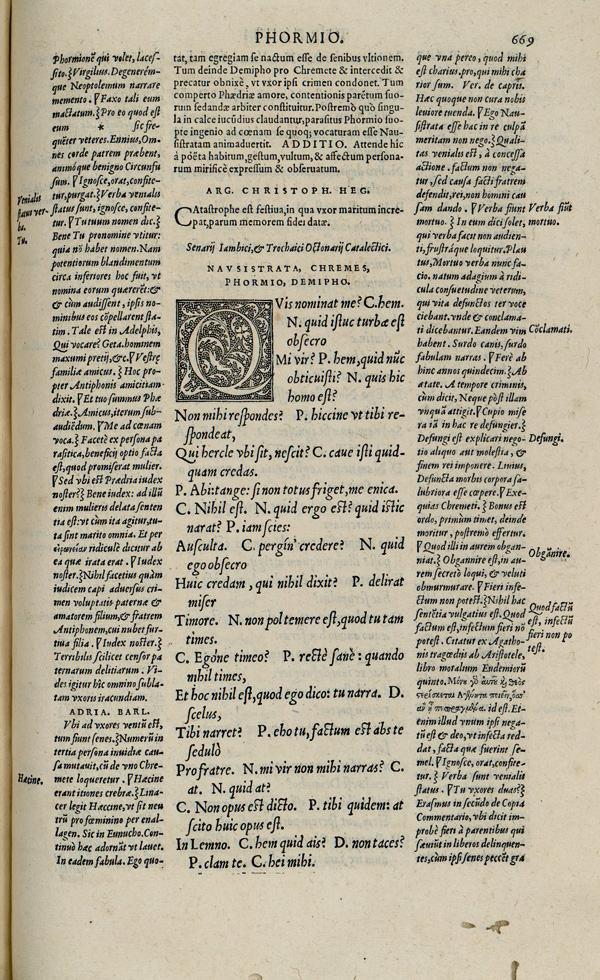 PHORMIO.
669
Phormionē qui volet, laces-
sito. Virgilius. Degenerém-
que Neoptolemum narrare
memento. Faxo tali eum
mactatum. Pro eo quod est
eum * sic fre-
quēter veteres. Ennius, Om-
nes corde patrem præbent,
animóque benigno Circunfu
sum. Ignosce, orat, confite-
tur, purgat. Verba venialis
status sunt, ignosce, confite-
tur. Tu tutum nomen dic.
Bene Tu pronomine vtitur:
quia nō habet nomen. Nam
potentiorum blandimentum
circa inferiores hoc fuit, vt
nomina eorum quæreret:
& cùm audissent, ipsis no-
minibus eos cōpellarent sta-
tim. Tale est in Adelphis,
Qui vocare? Geta. hominem
maxumi pretij, &c. Vestræ
familiæ amicus. Hoc pro-
pter Antiphonis amicitiam
dixit. Et tuo summus Phæ
driæ. Amicus, iterum sub-
audiēdum. Me ad cœnam
voca. Facetè ex persona pa
rasitica, beneficij optio facta
est, quod promiserat mulier.
Sed vbi est Phædria iudex
noster? Bene iudex: ad illū
enim mulieris delata senten
tia est: vt cùm ita agitur, tu-
ta sint marito omnia. Et per
ridiculè dicitur ab
ea quæ irata erat. Iudex
noster. Nihil facetius quàm
iudicem capi aduersus cri-
men voluptatis paternæ &
amatorem filium, & fratrem
Antiphonem, cui nubet fur-
tiua filia. Iudex noster.
Terribilis scilicet censor pa
ternarum delitiarum. Vi-
des igitur hîc omnino subla-
tam vxoris iracundiam.
ADRIA. BARL.
Vbi ad vxores ventū est,
tum fiunt senes. Numerū in
tertia persona inuidiæ cau-
sa mutauit, cū de vno Chre-
mete loqueretur. Hæcine
erant itiones crebræ. Lina-
cer legit Hæccine, vt sit neu
trū pro fœminino per enal-
lagen. Sic in Eunucho. Con-
tinuò hæc adornāt vt lauet.
In eadem fabula. Ego quo-
Venialis
status ver-
ba.
Tu.
Hæcine.
tat, tam egregiam se nactum esse de senibus vltionem.
Tum deinde Demipho pro Chremete & intercedit &
precatur obnixè, vt vxor ipsi crimen condonet. Tum
comperto Phædriæ amore, contentionis parētum suo-
rum sedandæ arbiter constituitur. Postremò quò singu-
la in calce iucūdius claudantur, parasitus Phormio suo-
pte ingenio ad cœnam se quoq; vocaturam esse Nau-
sistratam animaduertit. ADDITIO. Attende hîc
à pōeta habitum, gestum, vultum, & affectum persona-
rum mirificè expressum & obseruatum.
ARG. CHRISTOPH. HEG.
CAtastrophe est festiua, in qua vxor maritum incre-
pat, parum memorem fidei datæ.
Senarij Iambici, & Trochaici Octonarij Catalectici.
NAVSISTRATA, CHREMES,
PHORMIO, DEMIPHO.
QVis nominat me? C. hem.
N. quid istuc turbæ est
obsecro
Mi vir? P. hem, quid nūc
obticuisti? N. quis hic
homo est?
Non mihi respondes? P. hiccine vt tibi re-
spondeat,
Qui hercle vbi sit, nescit? C. caue isti quid-
quam credas.
P. Abi: tange: si non totus friget, me enica.
C. Nihil est. N. quid ergo est? quid istic
narat? P. iam scies:
Ausculta. C. pergín' credere? N. quid
ego obsecro
Huic credam, qui nihil dixit? P. delirat
miser
Timore. N. non pol temere est, quod tu tam
times.
C. Egóne timeo? P. rectè sanè: quando
nihil times,
Et hoc nihil est, quod ego dico: tu narra. D.
scelus,
Tibi narret? P. eho tu, factum est abs te
sedulò
Pro fratre. N. mi vir non mihi narras? C.
at. N. quid at?
C. Non opus est dicto. P. tibi quidem: at
scito huic opus est.
In Lemno. C. hem quid ais? D. non taces?
P. clam te. C. hei mihi.
que vna pereo, quod mihi
est charius. pro, qui mihi cha
rior sum. Ver. de capris.
Hac quoque non cura nobis
leuiore tuenda. Ego Nau-
sistrata esse hac in re culpā
meritam non nego. Quali-
tas venialis est, à concessa
actione. factum non nega-
tur, sed causa facti fratrem
defendit, rei, non homini cau
sam dando. Verba fiunt
mortuo. In eum dici solet,
qui verba facit non audien-
ti, frustráque loquitur. Plau
tus, Mortuo verba nunc fa-
cio. natum adagium à ridi-
cula consuetudine veterum,
qui vita defunctos ter voce
ciebant. vnde & conclama-
ti dicebantur. Eandem vim
habent. Surdo canis, surdo
fabulam narras. Ferè ab
hinc annos quindecim. Ab
ætate. A tempore criminis,
cùm dicit, Neque pōst illam
vnquā attigit. Cupio mise
ra iā in hac re defungier.
Defungi est explicari nego-
tio aliquo aut molestia, &
finem rei imponere. Liuius,
Defuncta morbis corpora sa-
lubriora esse cœpere. Exe-
quias Chremeti. Bonus est
ordo, primùm timet, deinde
moritur, postremò effertur.
Quod illi in aurem obgan-
niat. Obgannire est, in au-
rem secretò loqui, & veluti
obmurmurare. Fieri infe-
ctum non potest. Nihil hac
sentētia vulgatius est. Quod
factum est, infectum fieri nō
potest. Citatur ex Agatho-
nis tragœdiis ab Aristotele,
libro moralium Endemiorū
quinto.
id est. Et-
enim illud vnum ipsi nega-
tū est & deo, vt infecta red-
dat, facta quæ fuerint se-
mel. Ignosce, orat, confite-
tur. Verba sunt venialis
status. Tu vxores duas?
Erasmus in secūdo de Copia
Commentario, vbi dicit im-
probè fieri à parentibus qui
sæuiūt in liberos delinquen-
tes, cùm ipsi senes peccēt gra
Verba fiūt
mortuo.
Cōclamati.
Defungi.
Obgānire.
Quod factū
est, infectū
fieri non po
test.